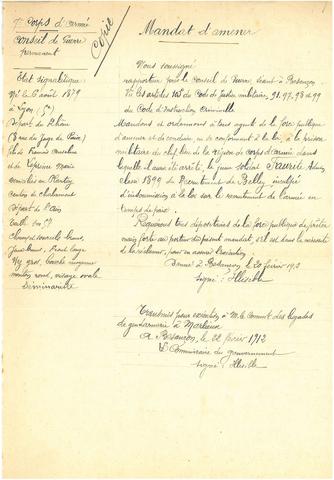 7e Corps d'armée
Conseil de Guerre
permanent
Copie
Etat signalétique :
Né le 6 août 1879
à Lyon (5e)
Dépt du Rhône
fils de
et de Marie
domicilié au Plantay
canton de Chalamont
Dépt de l'Ain
Taille 1m
Cheveux sourcils
front
Nez gros, bouche moyenne
menton rond, visage ovale
Séminariste
Mandat d'amener
Nous soussigné
rapporteur près le Conseil de Guerre séant à Besançon
Vu les articles 105 du Code de Justice militaire, 91, 97, 98 et 99
du Code d'Instruction Criminelle
Mandons et ordonnons à tous agents de la force publique
d'amener et de conduire, en se conformant à la loi, à la prison
militaire du chef-lieu de la région de corps d'armée dans
laquelle il aura été arrêté, le jeune soldat
classe 1899 du Recrutement de Belley, inculpé
d'insoumission à la loi sur le recrutement de l'armée en
temps de paix.
Requérons tous dépositaires de la force publique de prêter
main forte au porteur du présent mandat, s'il est dans la nécessité
de la réclamer, pour en assurer l'exécution.
Donné à Besançon, le 20 février 1912
Signé :
Transmis pour exécution à M. le Commt des brigades
de gendarmerie à Marlieux
A Besançon, le 22 février 1912
Le Commissaire du gouvernement
Signé :